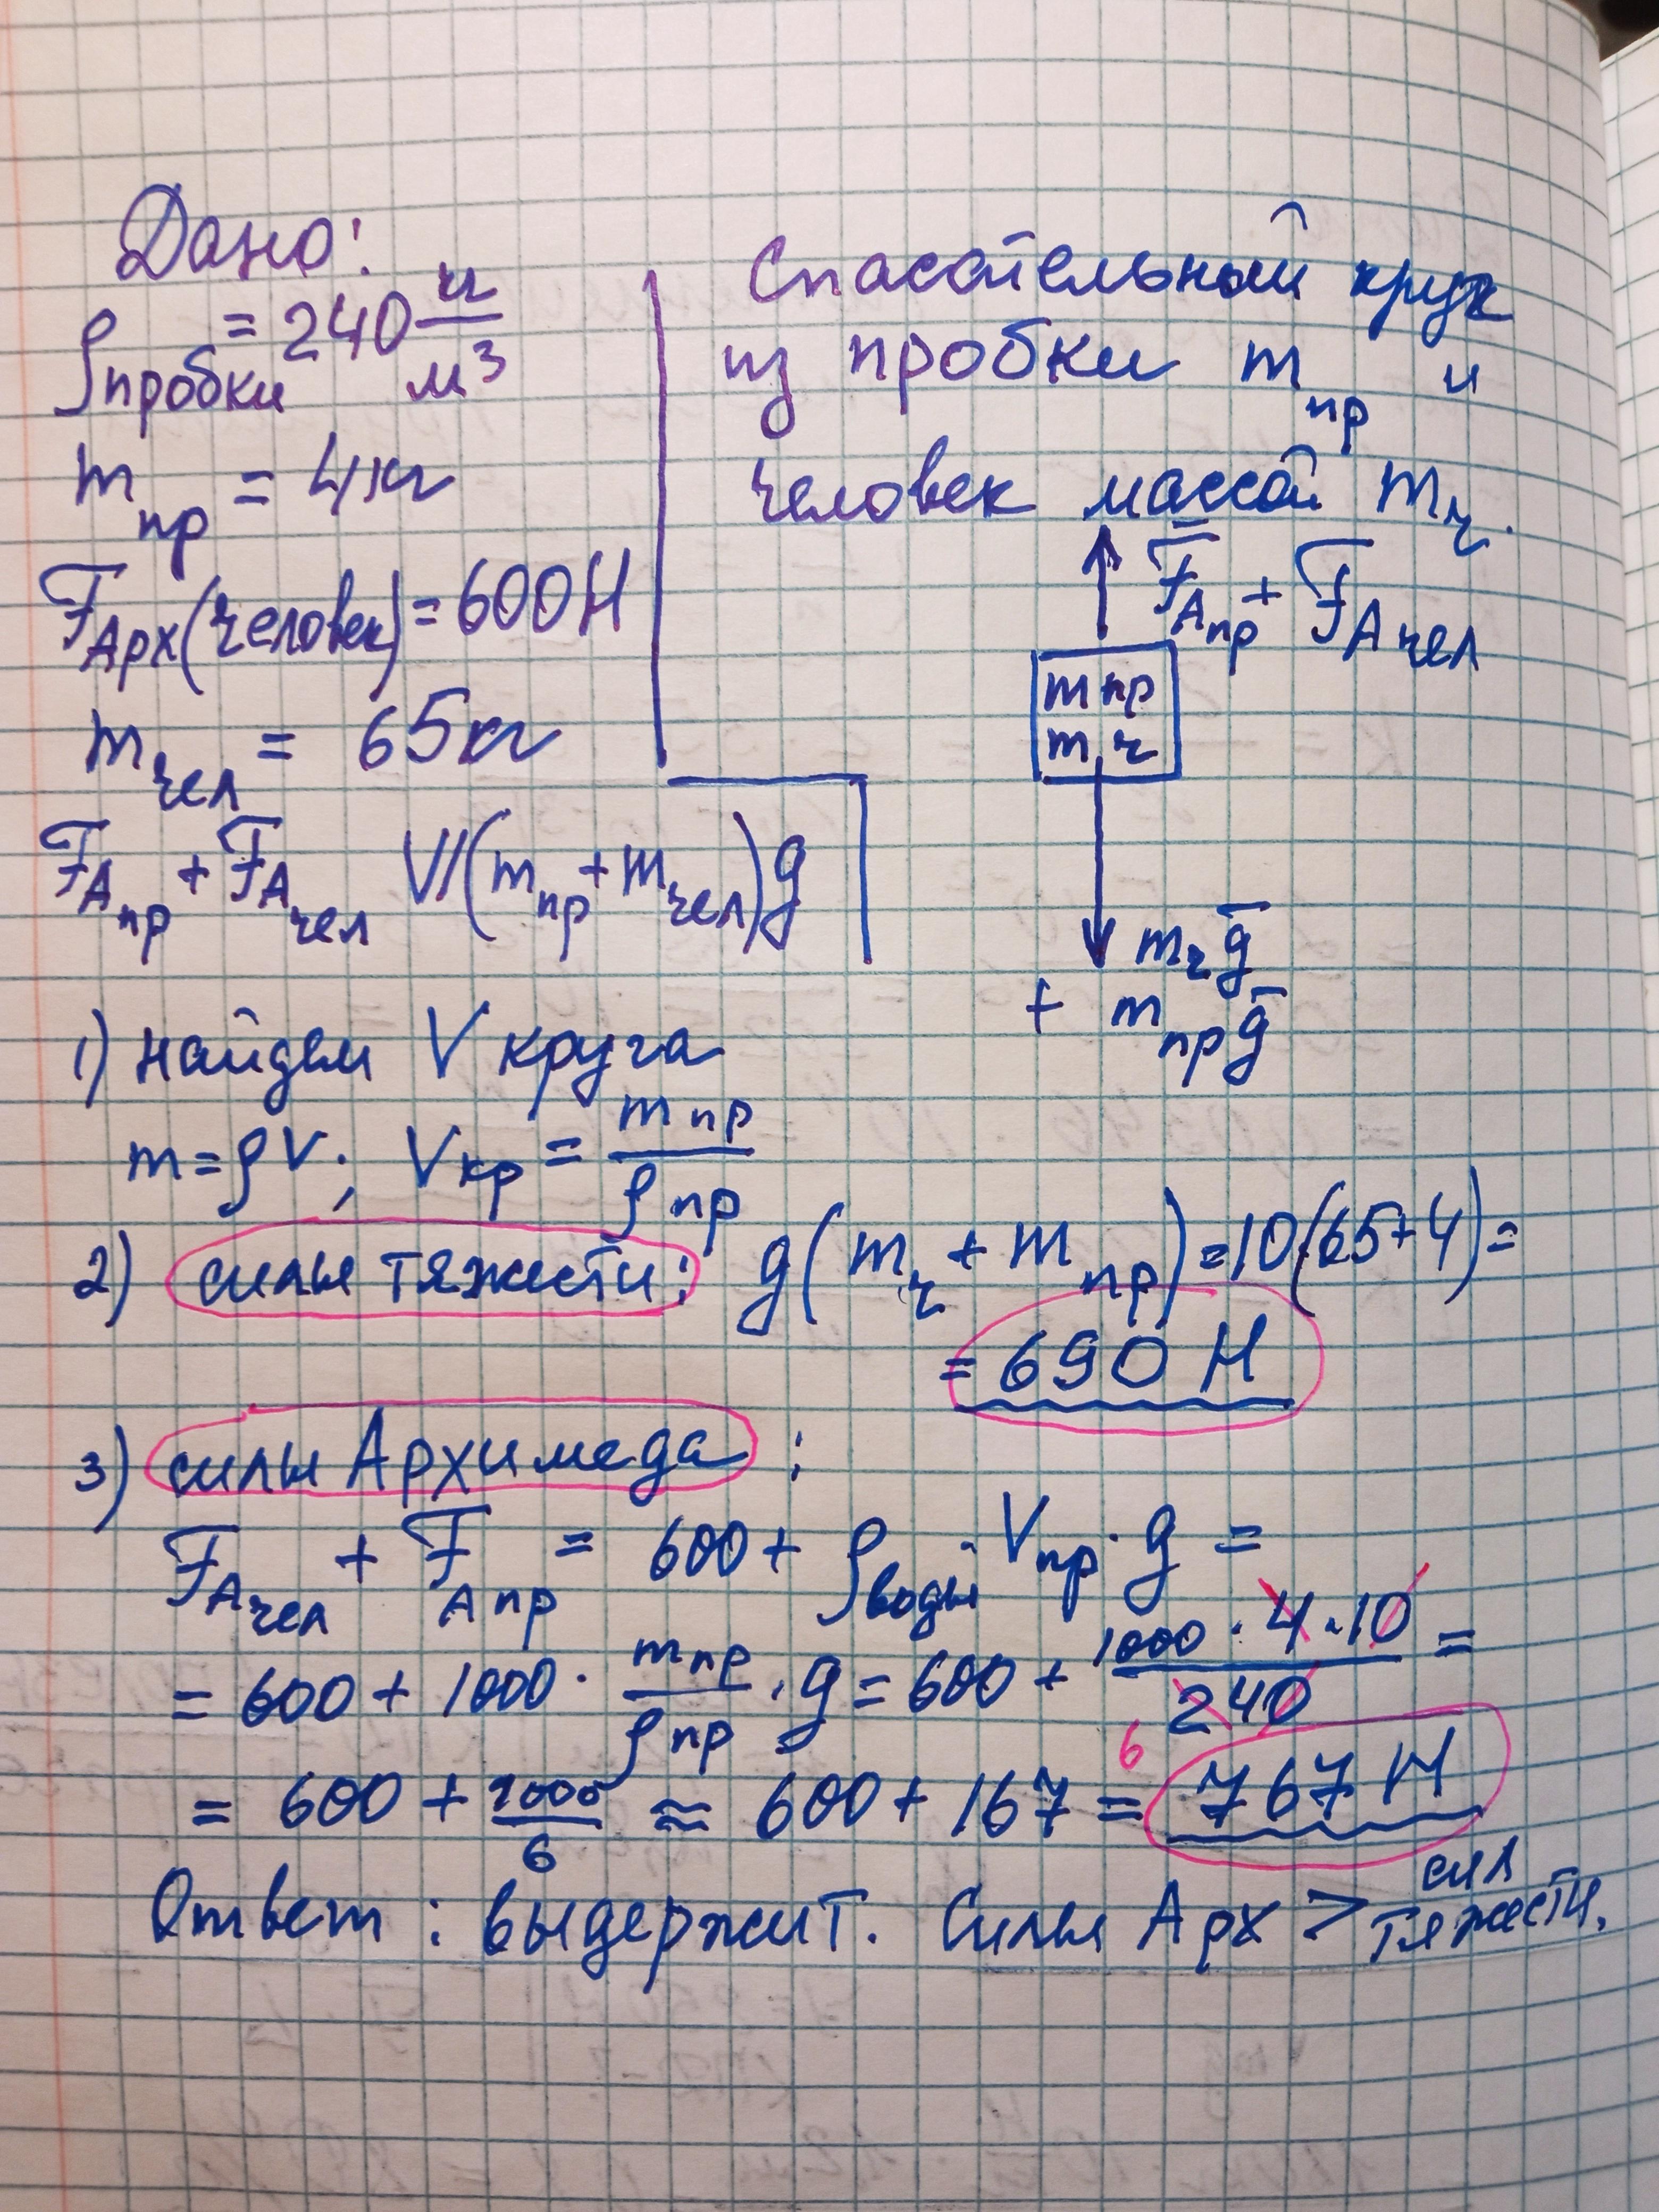 Дано:
ρпробки = 240 кг/м³
mпр = 4 кг
FАрх(человек) = 600 Н
mчел = 65 кг
FAпр + FAчел V//(mпр + mчел)g
Спасательный круг
из пробки mпр и
человек массой mч.
F̄Aпр + F̄Aчел
mпр
mч
mчḡ
+ mпрḡ
1) найдем V круга
m = ρV; Vкр = mпр/ρпр
2) силы тяжести: g(mч + mпр) = 10(65+4) =
= 690 Н
3) силы Архимеда :
FAчел + FAпр = 600 + ρводы · Vпр · g =
= 600 + 1000 · mпр/ρпр · g = 600 + 1000 · 4 · 10/240 =
6
= 600 + 1000/6 ≈ 600 + 167 = 767 Н
Ответ : выдержит. Силы Арх > сил тяжести.